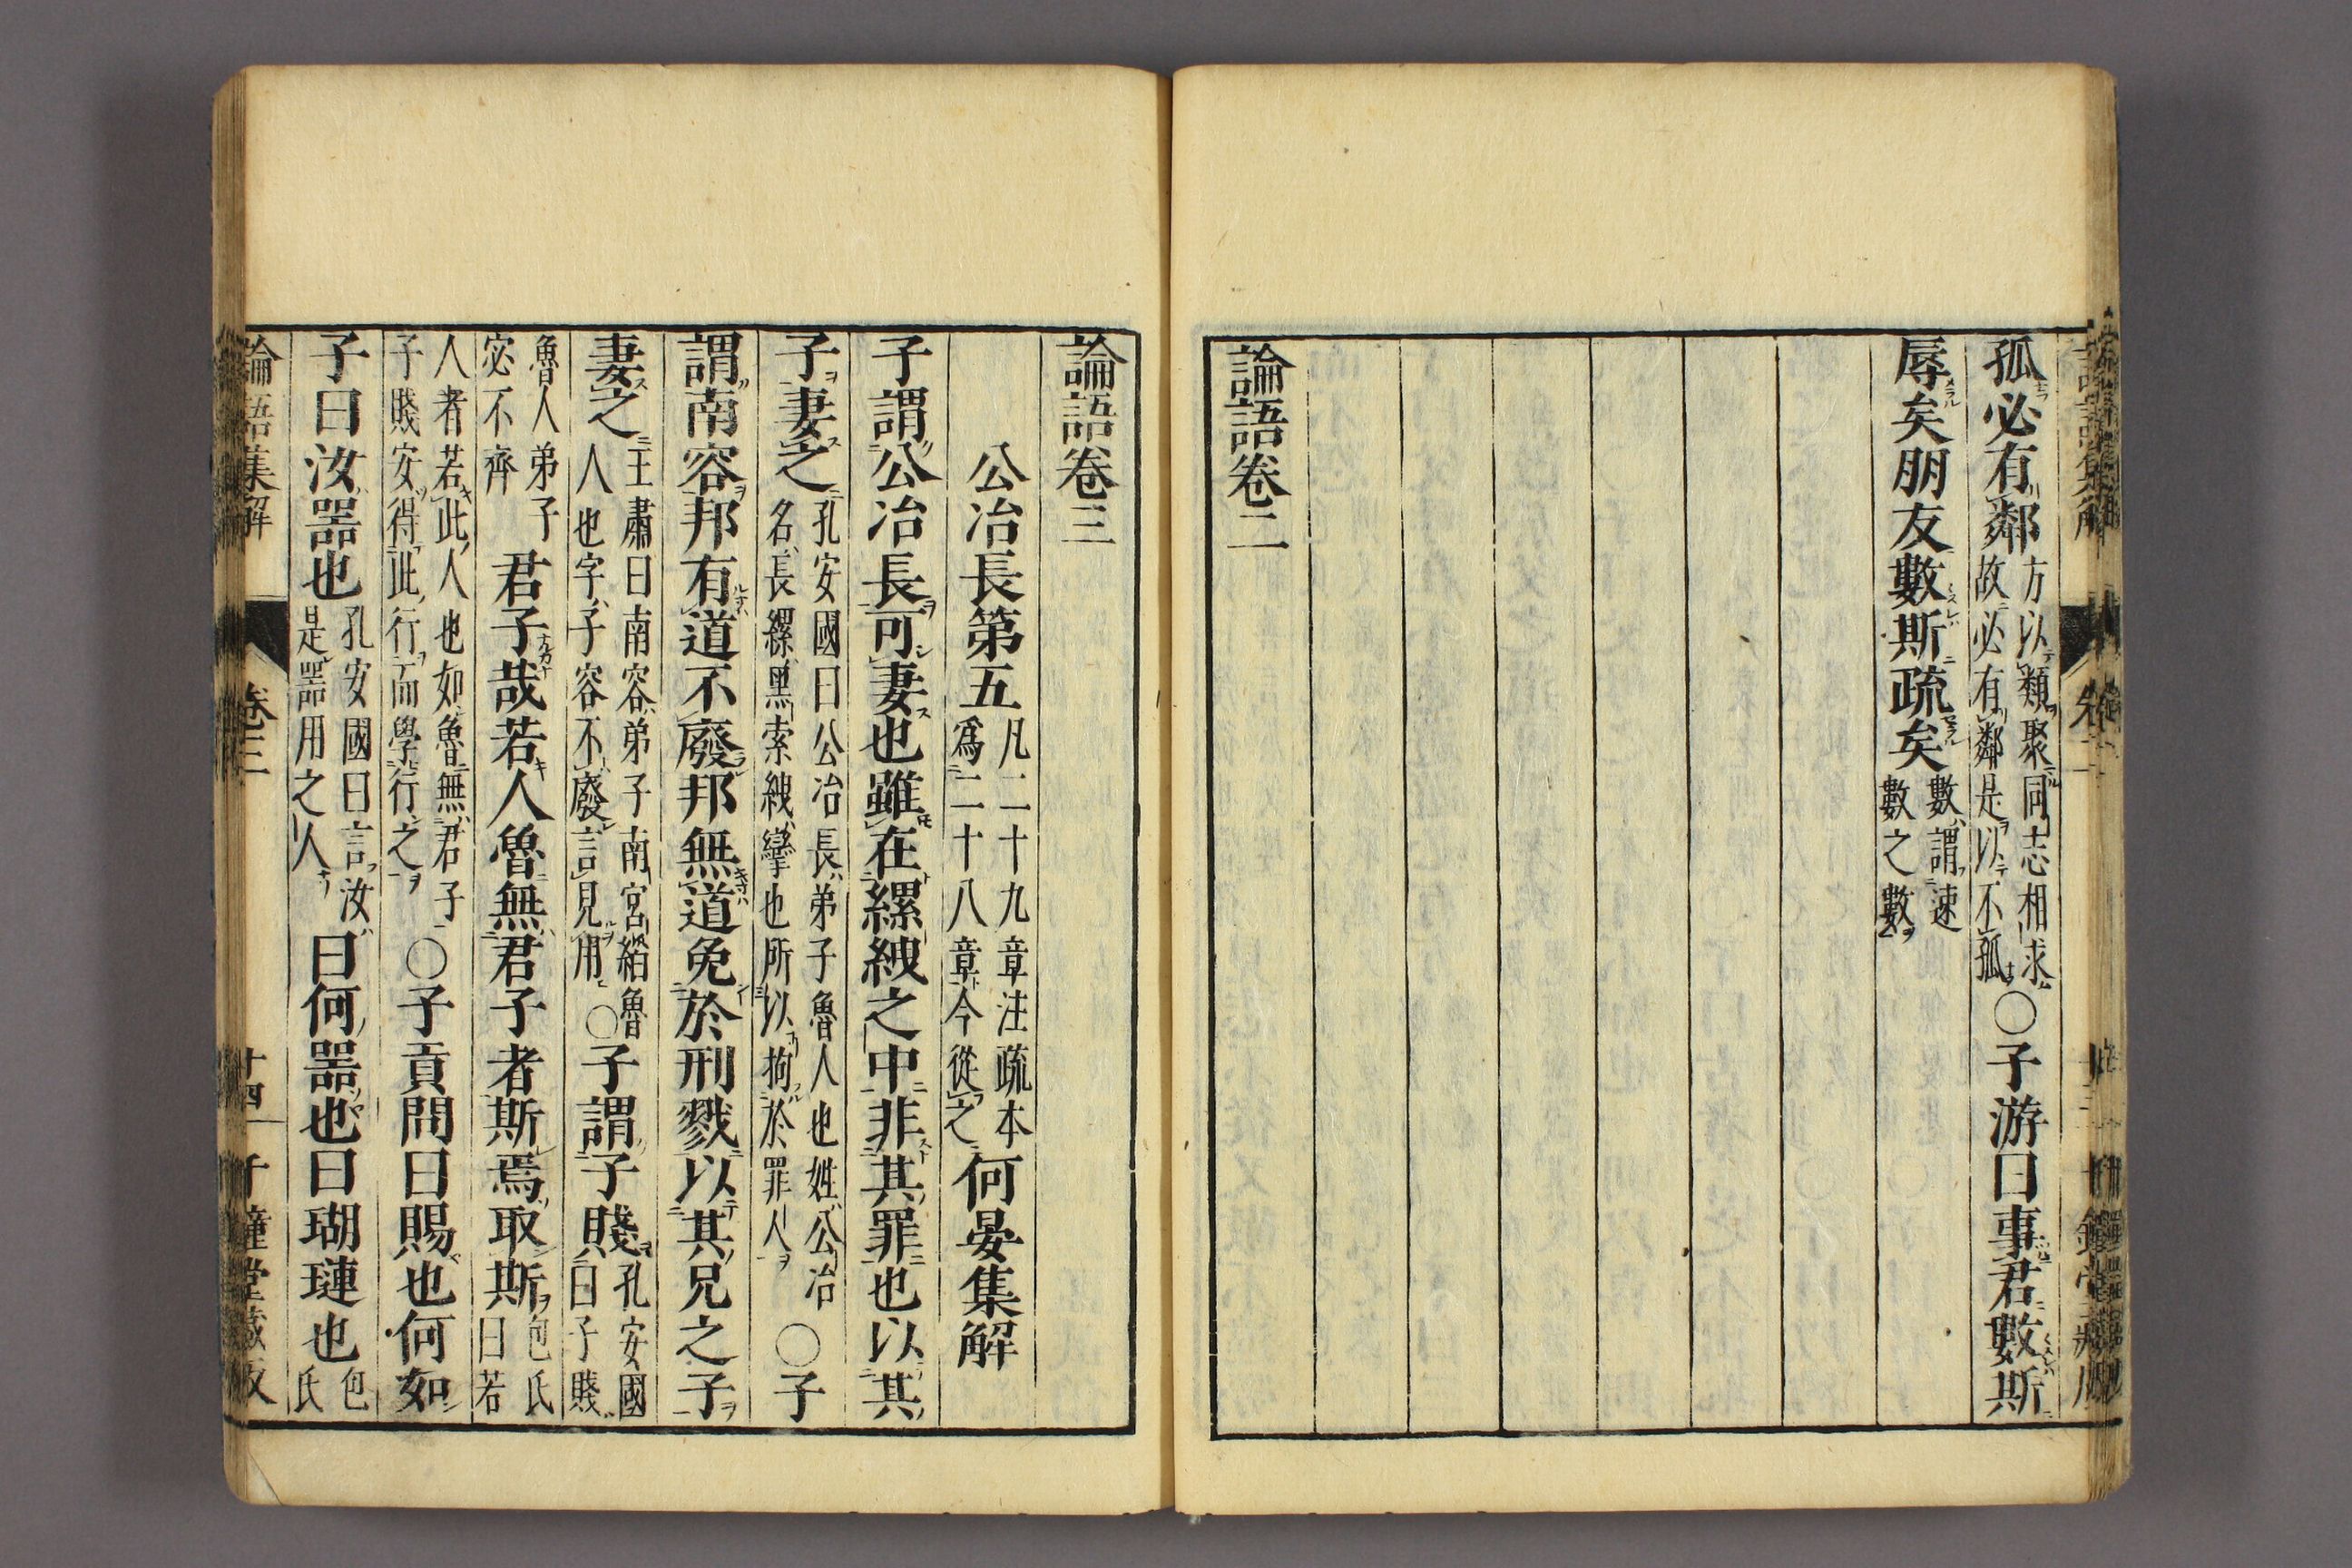 孤必有鄰方以類聚同志相求故必有鄰是以不孤○子游曰事君數斯
辱矣朋友數斯疏矣數謂速數之數
論語卷二
論語卷三
公冶長第五凡二十九章注疏本爲二十八章今從之何晏集解
子謂公冶長可妻也雖在縲絏之中非其罪也以其
子妻之孔安國曰公冶長弟子魯人也姓公冶名長縲黑索絏攣也所以拘於罪人○子
謂南容邦有道不廢邦無道免於刑戮以其兄之子
妻之王肅曰南容弟子南宮縚魯人也字子容不廢言見用○子謂子賤孔安國曰子賤
魯人弟子宓不齊君子哉若人魯無君子者斯焉取斯包氏曰若
人者若此人也如魯無君子子賤安得此行而學行之○子貢問曰賜也何如
子曰汝器也孔安國曰言汝是器用之人曰何器也曰瑚璉也包氏
論語集解 卷三 十四 千鍾堂藏板